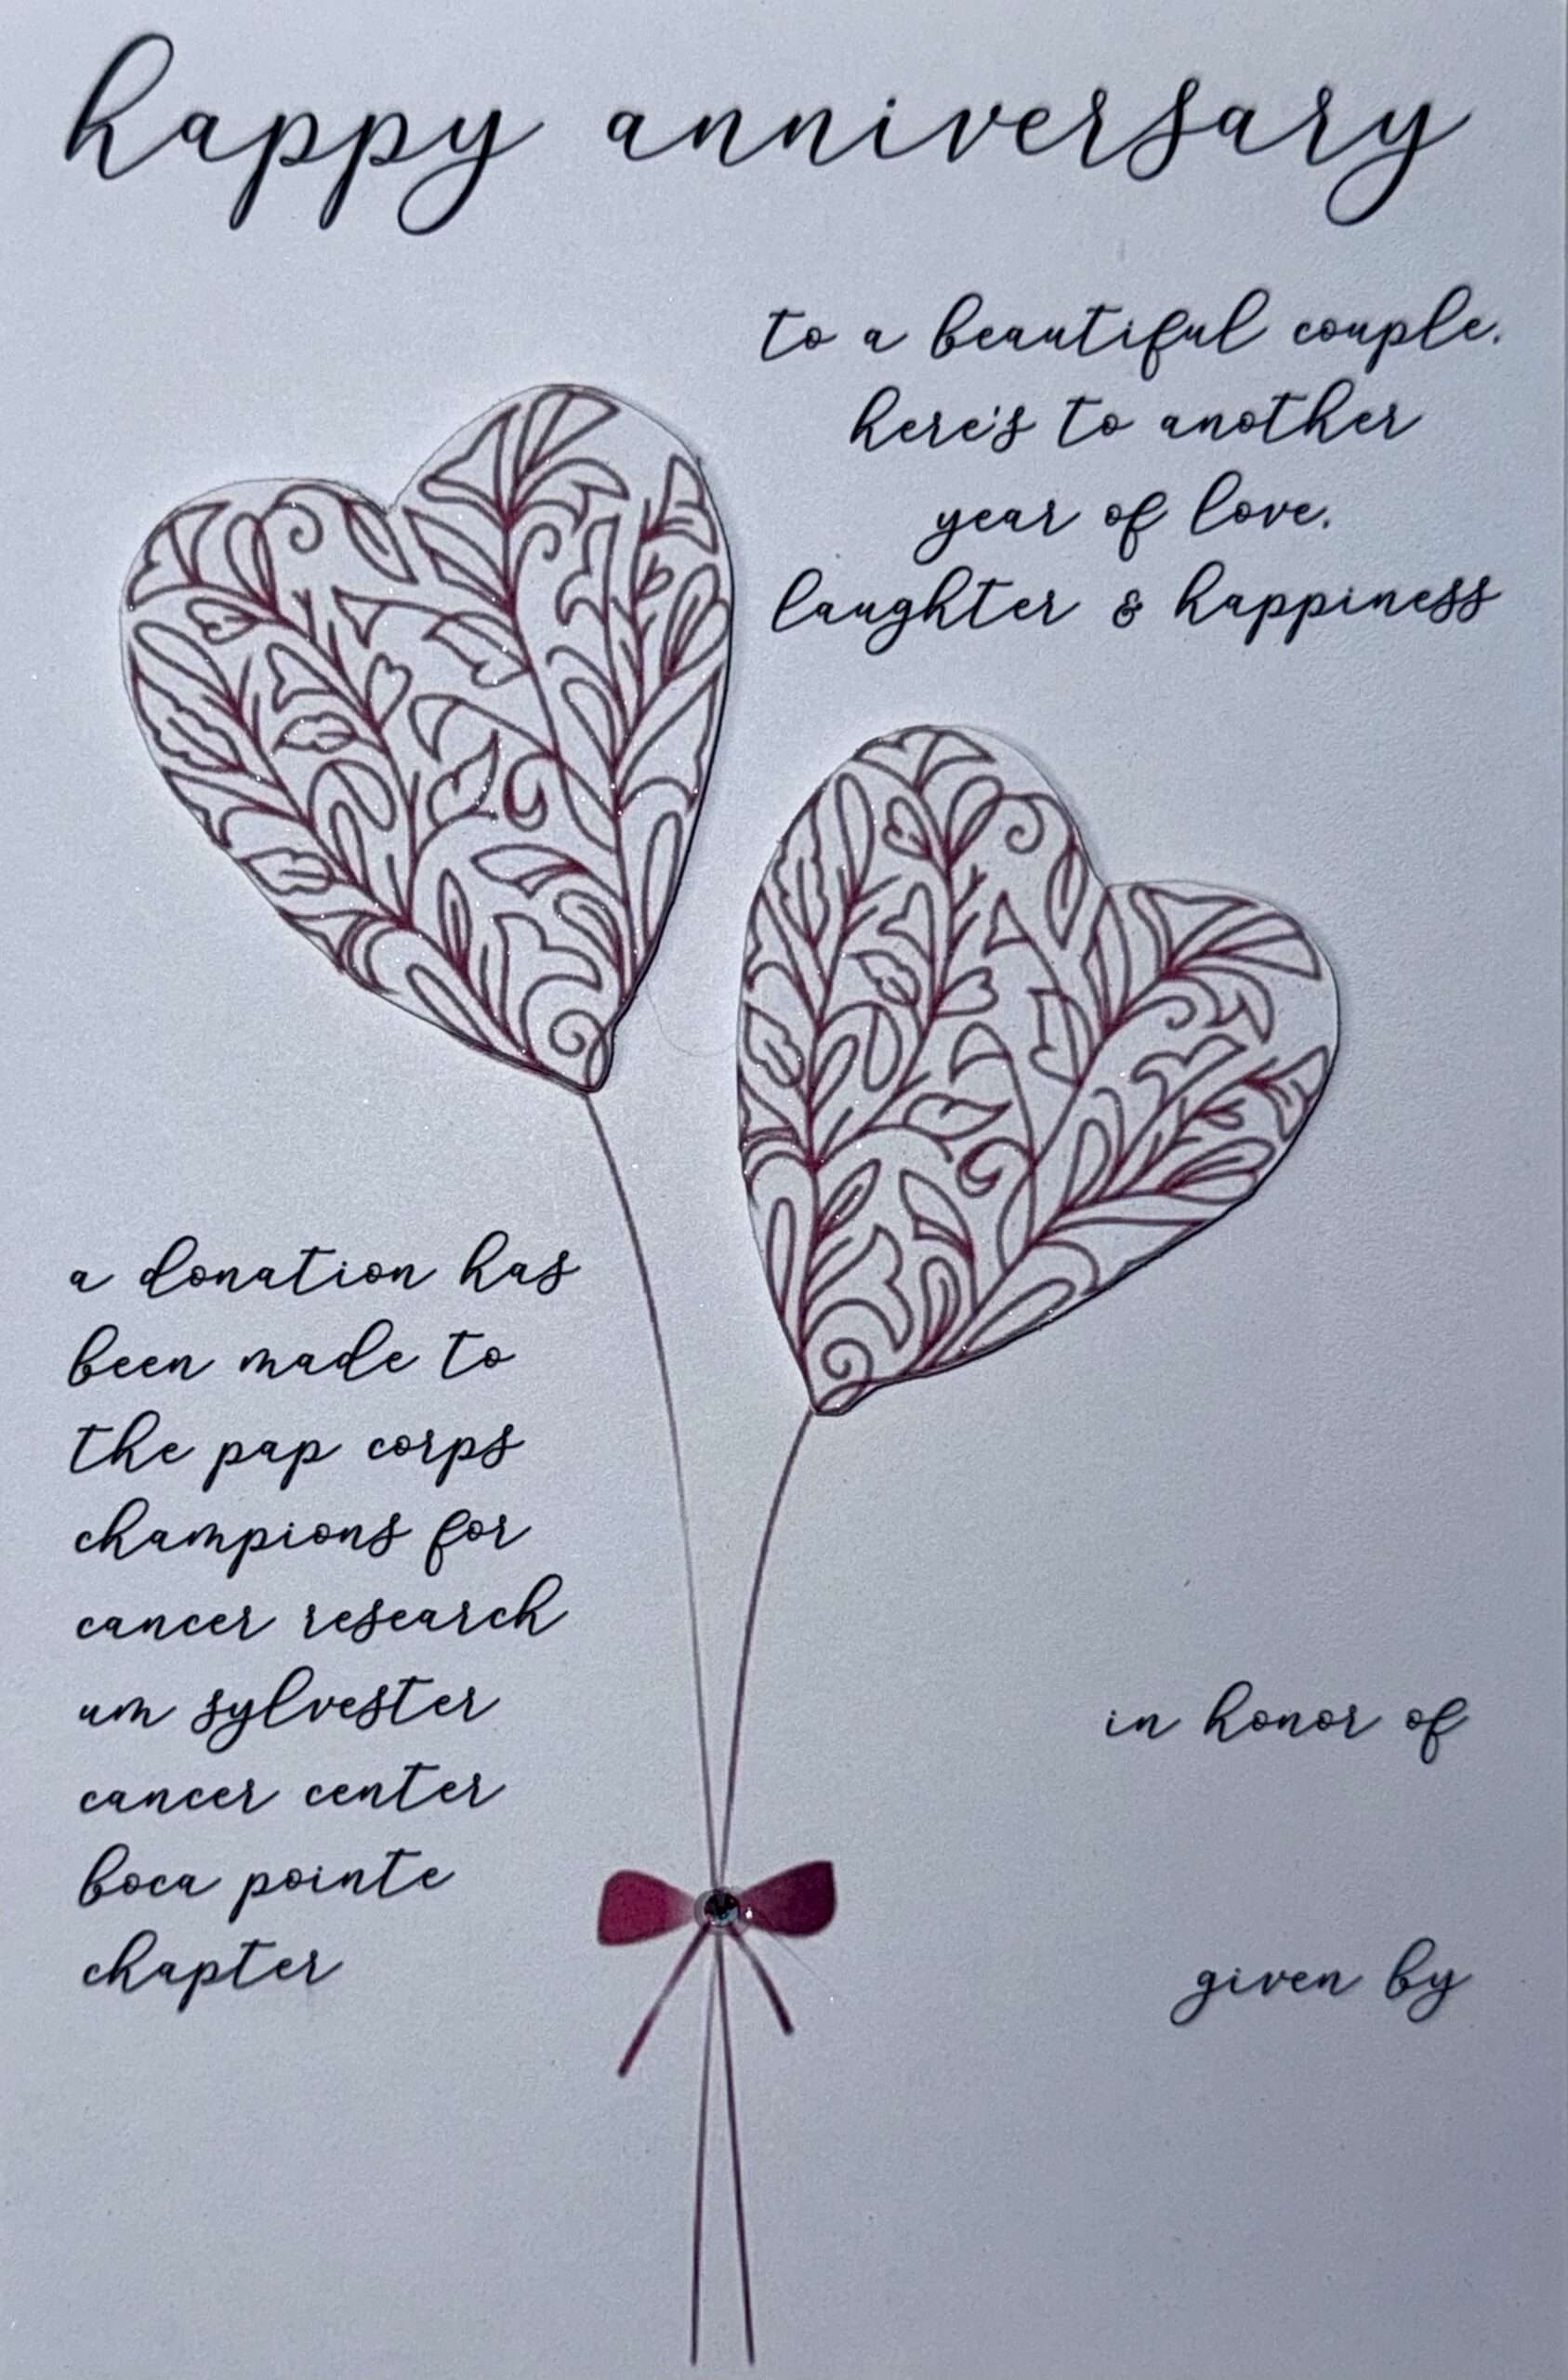 happy anniversary
to a beautiful couple.
here's to another
year of love.
laughter & happiness
a donation has
been made to
the pap corps
champions for
cancer research
um sylvester
cancer center
boca pointe
chapter
in honor of
given by